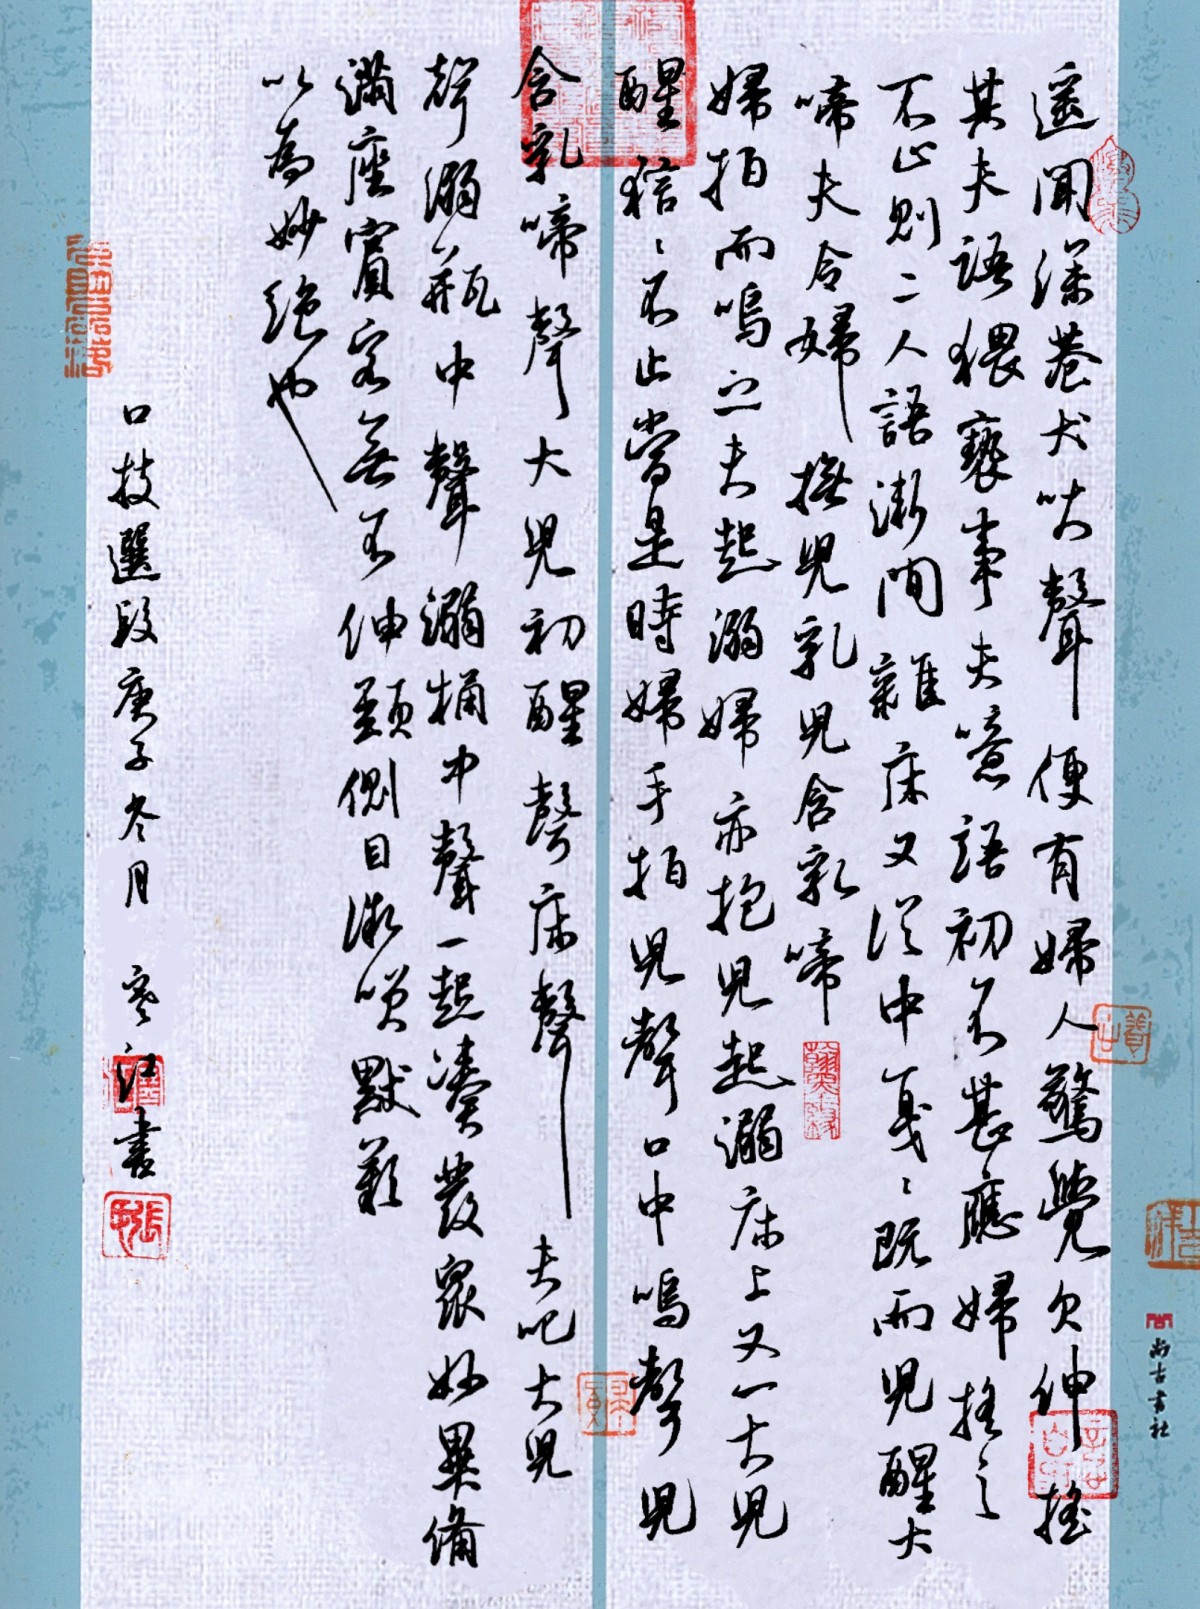 遙聞深巷犬吠聲便有婦人驚覺欠伸搖
其夫語猥褻事夫囈語初不甚應婦搖之
不止則二人語漸間雜床又從中戛〻既而兒醒大
啼夫令婦撫兒乳兒含乳啼
婦拍而嗚之夫起溺婦亦抱兒起溺床上又一大兒
醒狺〻不止當是時婦手拍兒聲口中嗚聲兒
含乳啼聲大兒初醒聲床聲夫叱大兒
聲溺瓶中聲溺桶中聲一起湊發衆妙畢備
滿座賓客無不伸頸側目微笑默歎
以為妙絕也
口技選段庚子冬月 寒江書
尚古書社